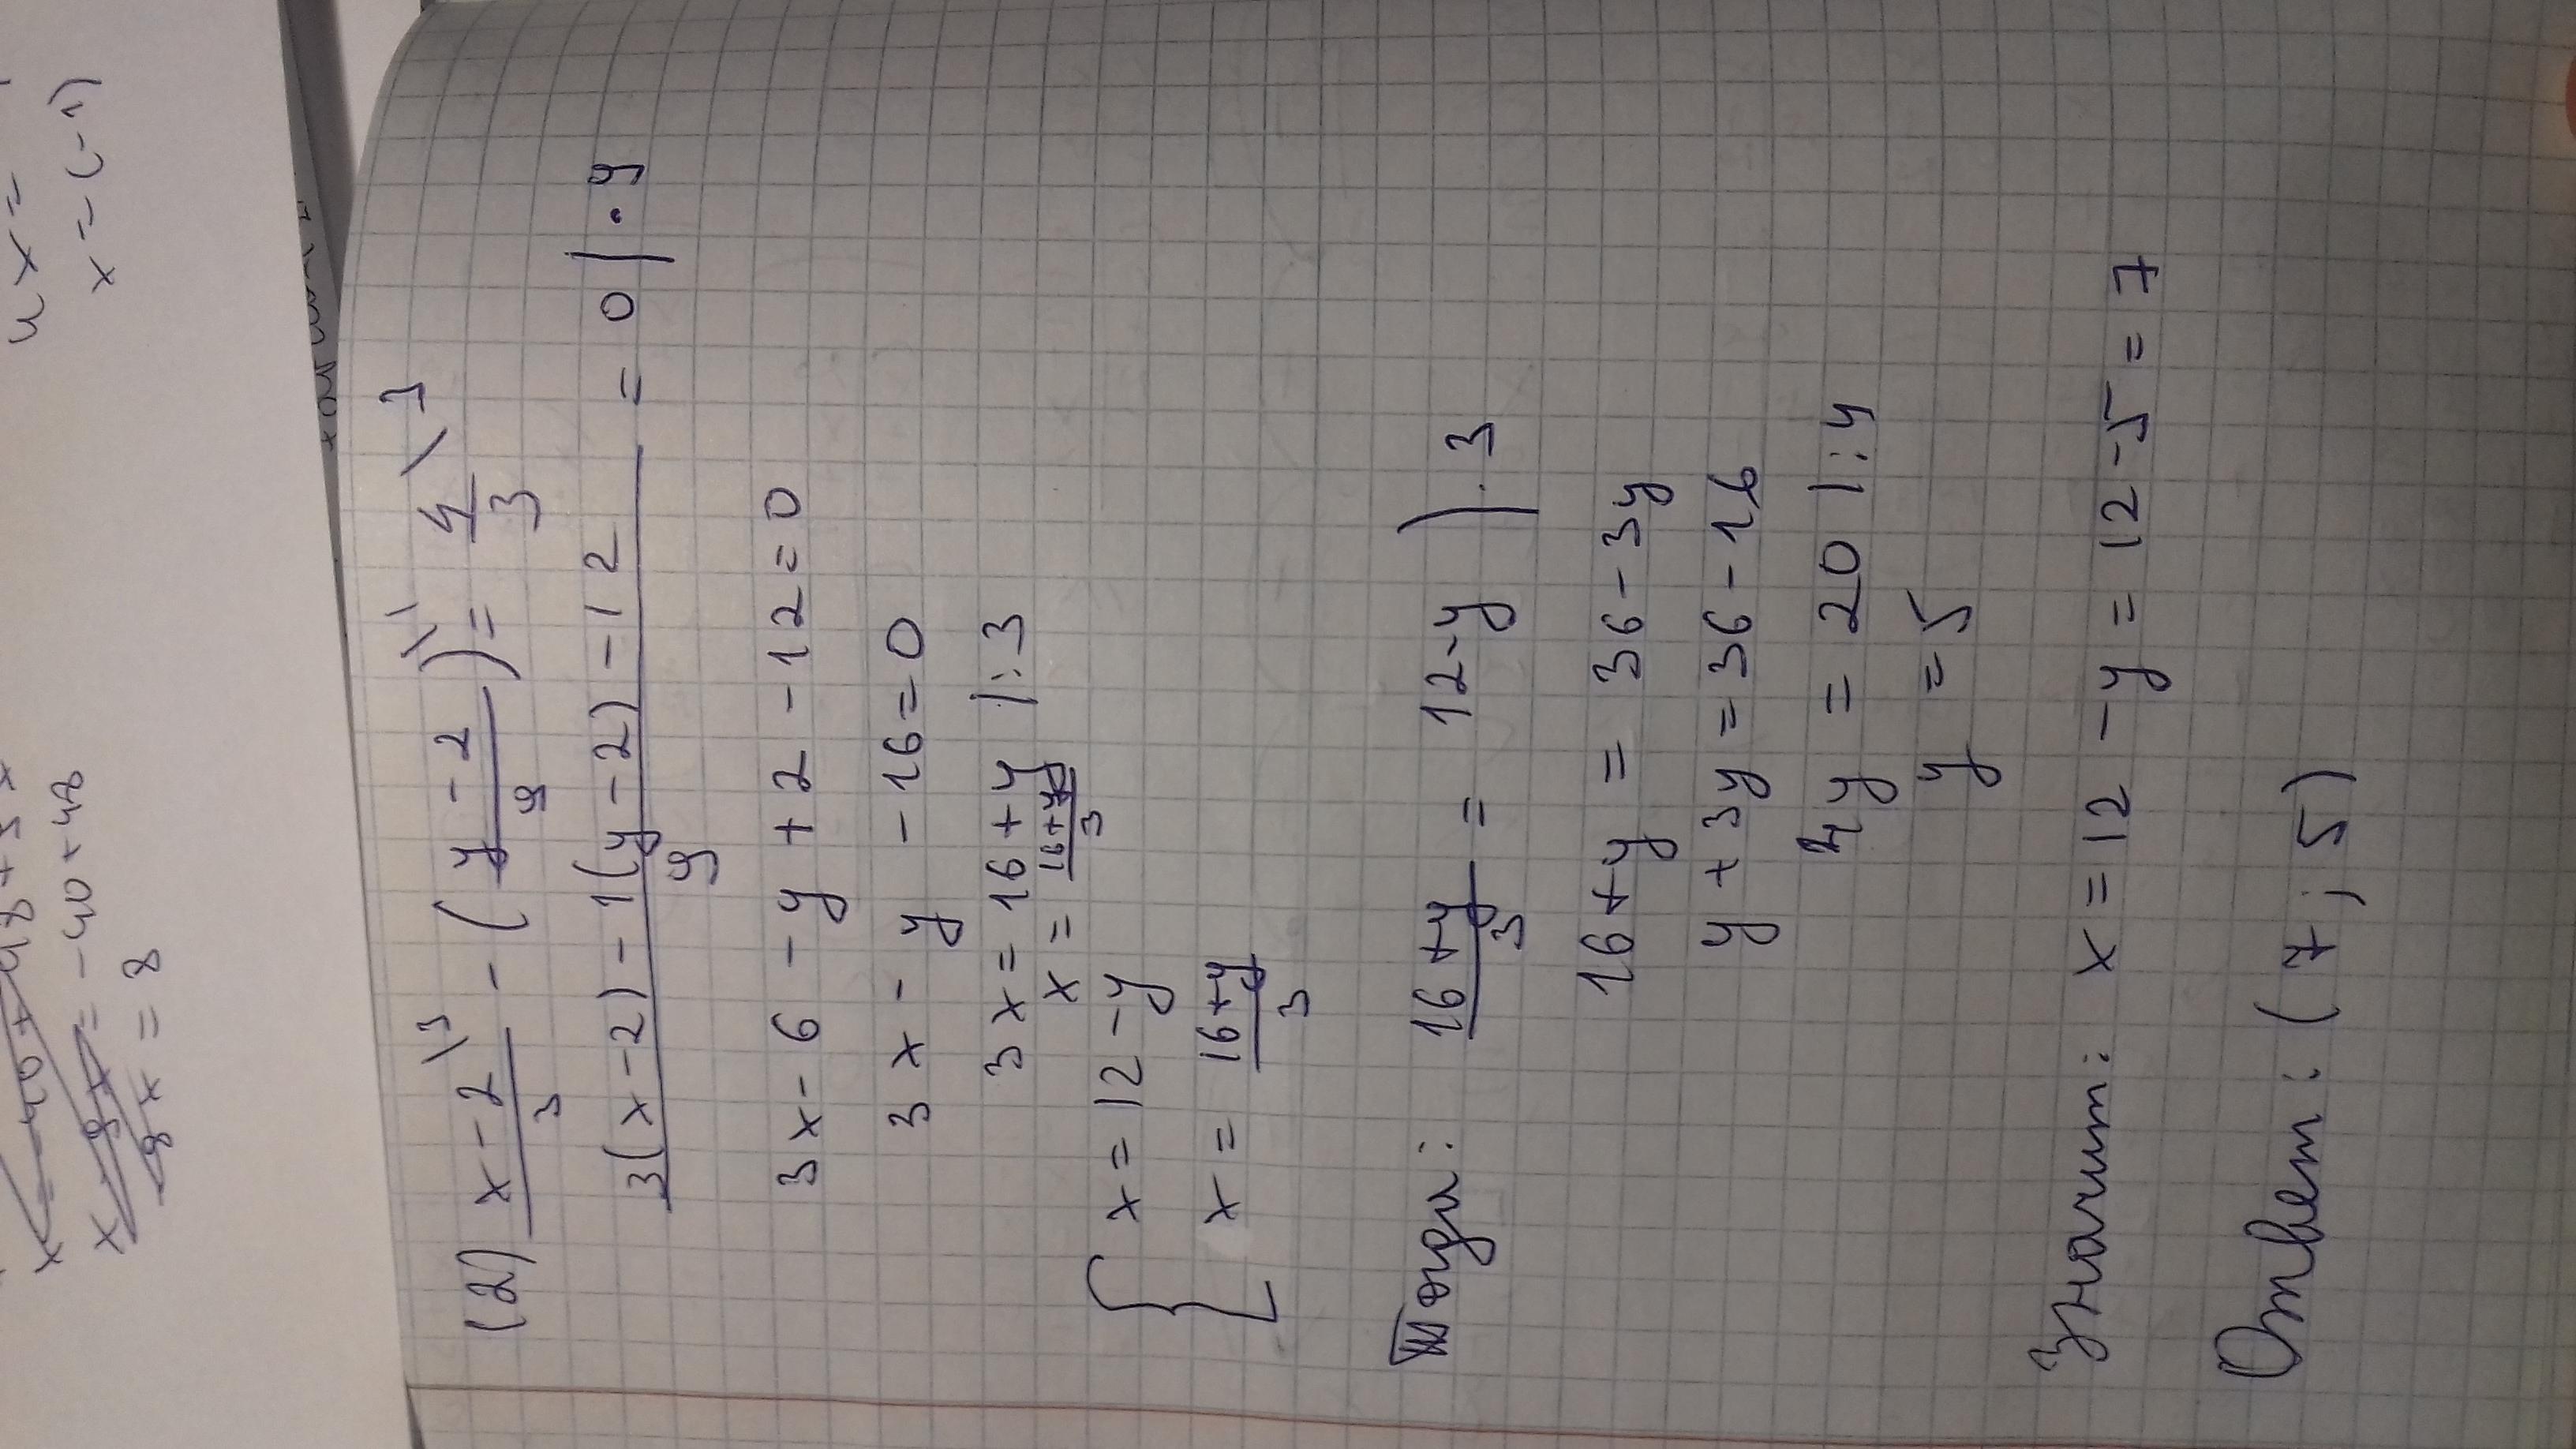 4x =
x = -(-1)
= -40 + 48
8x = 8
(2) x-2\3 / 3 - (y-2 / 9)\1 = 4/3 \3
3(x-2) - 1(y-2) - 12 / 9 = 0 | · 9
3x - 6 - y + 2 - 12 = 0
3x - y - 16 = 0
3x = 16 + y | : 3
x = 16+y / 3
{ x = 12 - y
x = 16+y / 3
Тогда: 16+y / 3 = 12-y | · 3
16 + y = 36 - 3y
y + 3y = 36 - 16
4y = 20 | : 4
y = 5
Значит: x = 12 - y = 12 - 5 = 7
Ответ: (7; 5)